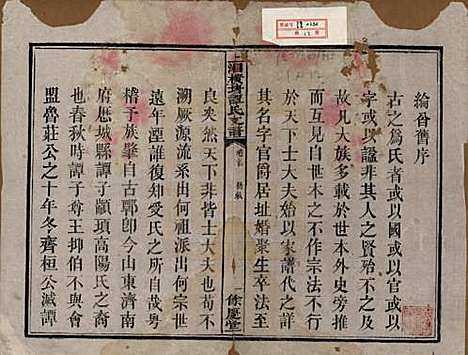 綸音舊序
古之為氏者或以國或以官或以
字或以諡非其人之賢殆不及此
故凡大族多載於世本外史旁推
而互見於世本之不作宗法不行
於天下士大夫始以家譜代之於
其名字官爵居址婚聚生卒法至
譚氏支譜
卷首
舊敘
一
餘慶堂
良矣然天下非皆士大夫也苟不
溯厥源流系出何祖派出何宗世
遠年湮誰復知受氏之所自哉粵
稽予族肇自古鄿卽今山東濟南
府歷城縣譚子顓頊高陽氏之裔
也春秋時譚子尊王抑伯不與會
盟魯莊公之十年冬齊桓公滅譚